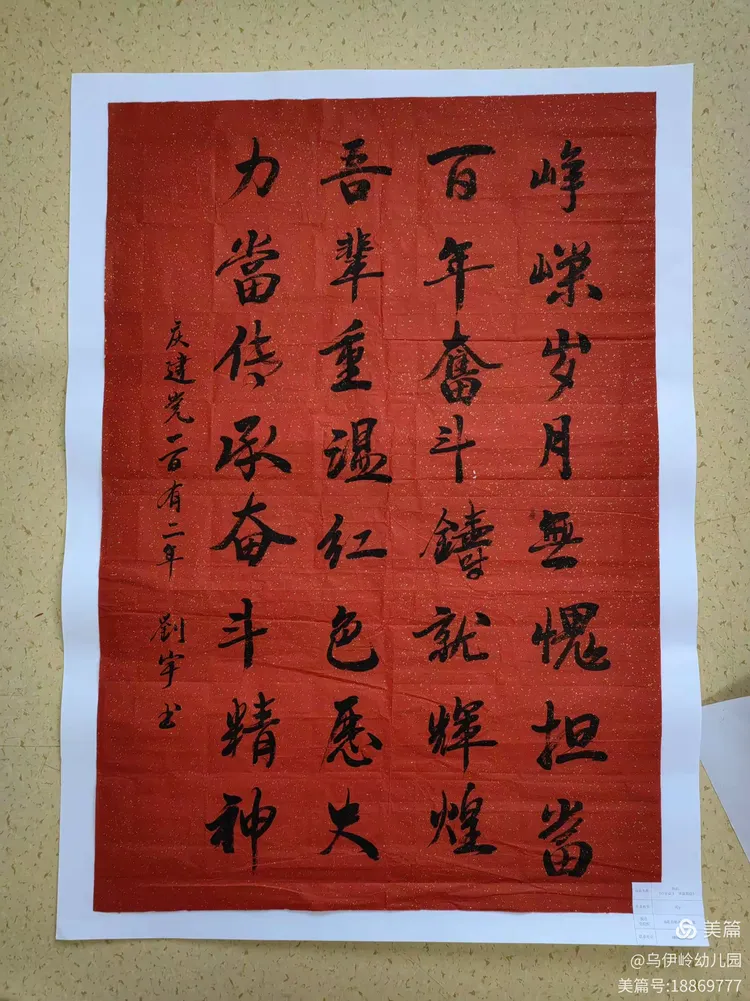 峥嵘岁月無愧担當
百年奮斗鑄就輝煌
吾辈重温红色歷史
力當传承奋斗精神
庆建党一百有二年 劉宇书
美篇
@乌伊岭幼儿园
美篇号:18869777